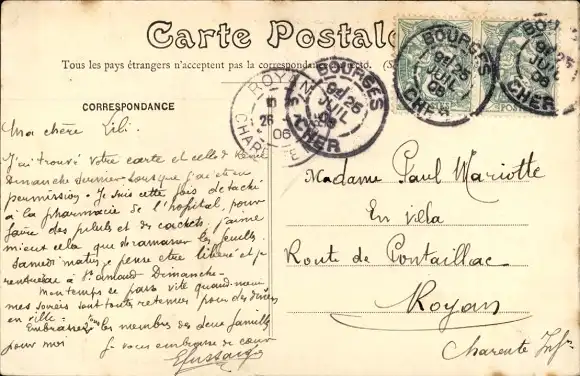 Carte Postale
Tous les pays étrangers n'acceptent pas la correspondance au recto.
CORRESPONDANCE
Ma chère Lili.
J'ai trouvé votre carte et celle de
Dimanche dernier lorsque j'ai été en
permission. Je suis cette fois détaché
à la pharmacie de l'hopital, pour
faire des pilules et des cachets, j'aime
mieux cela que de ramasser les feuilles.
Samedi matin je pense être libéré et je
rentrerai à St Amand Dimanche.
Mon temps se passe vite quand même
mes soirées sont toutes retenues pour des dîners
en ville.
Embrassez les membres des deux familles
pour moi
Je vous embrasse de cœur
Madame Paul Mariotte
En villa
Route de Pontaillac
Royan
Charente Infre
ROYAN
26
06
BOURGES
25
JUIL
06
CHER
BOURGES
25
JUIL
06
CHER
25
JUIL
06
CHER